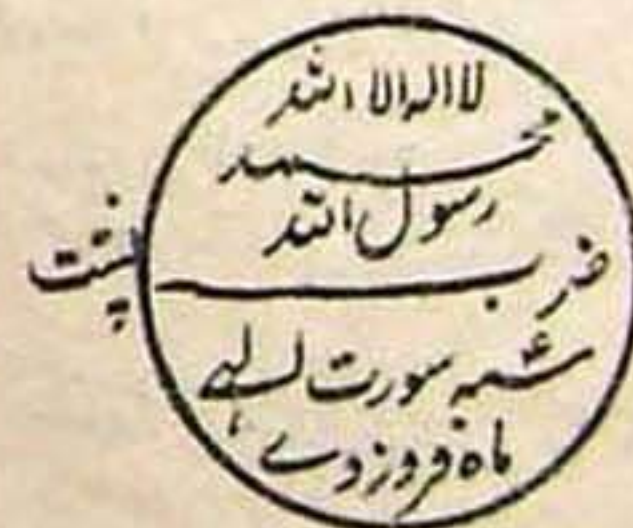 لا اله الا الله
محمد
رسول الله
ضرب
پشت
سنہ سورت الہی
ماہ فروردے